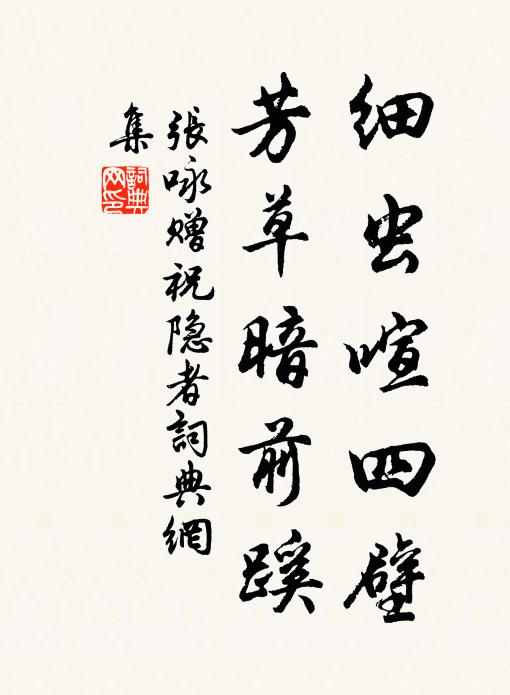 细虫喧四壁
芳草暗前蹊
張咏赠祝隐者詞典網
集
詞典网印